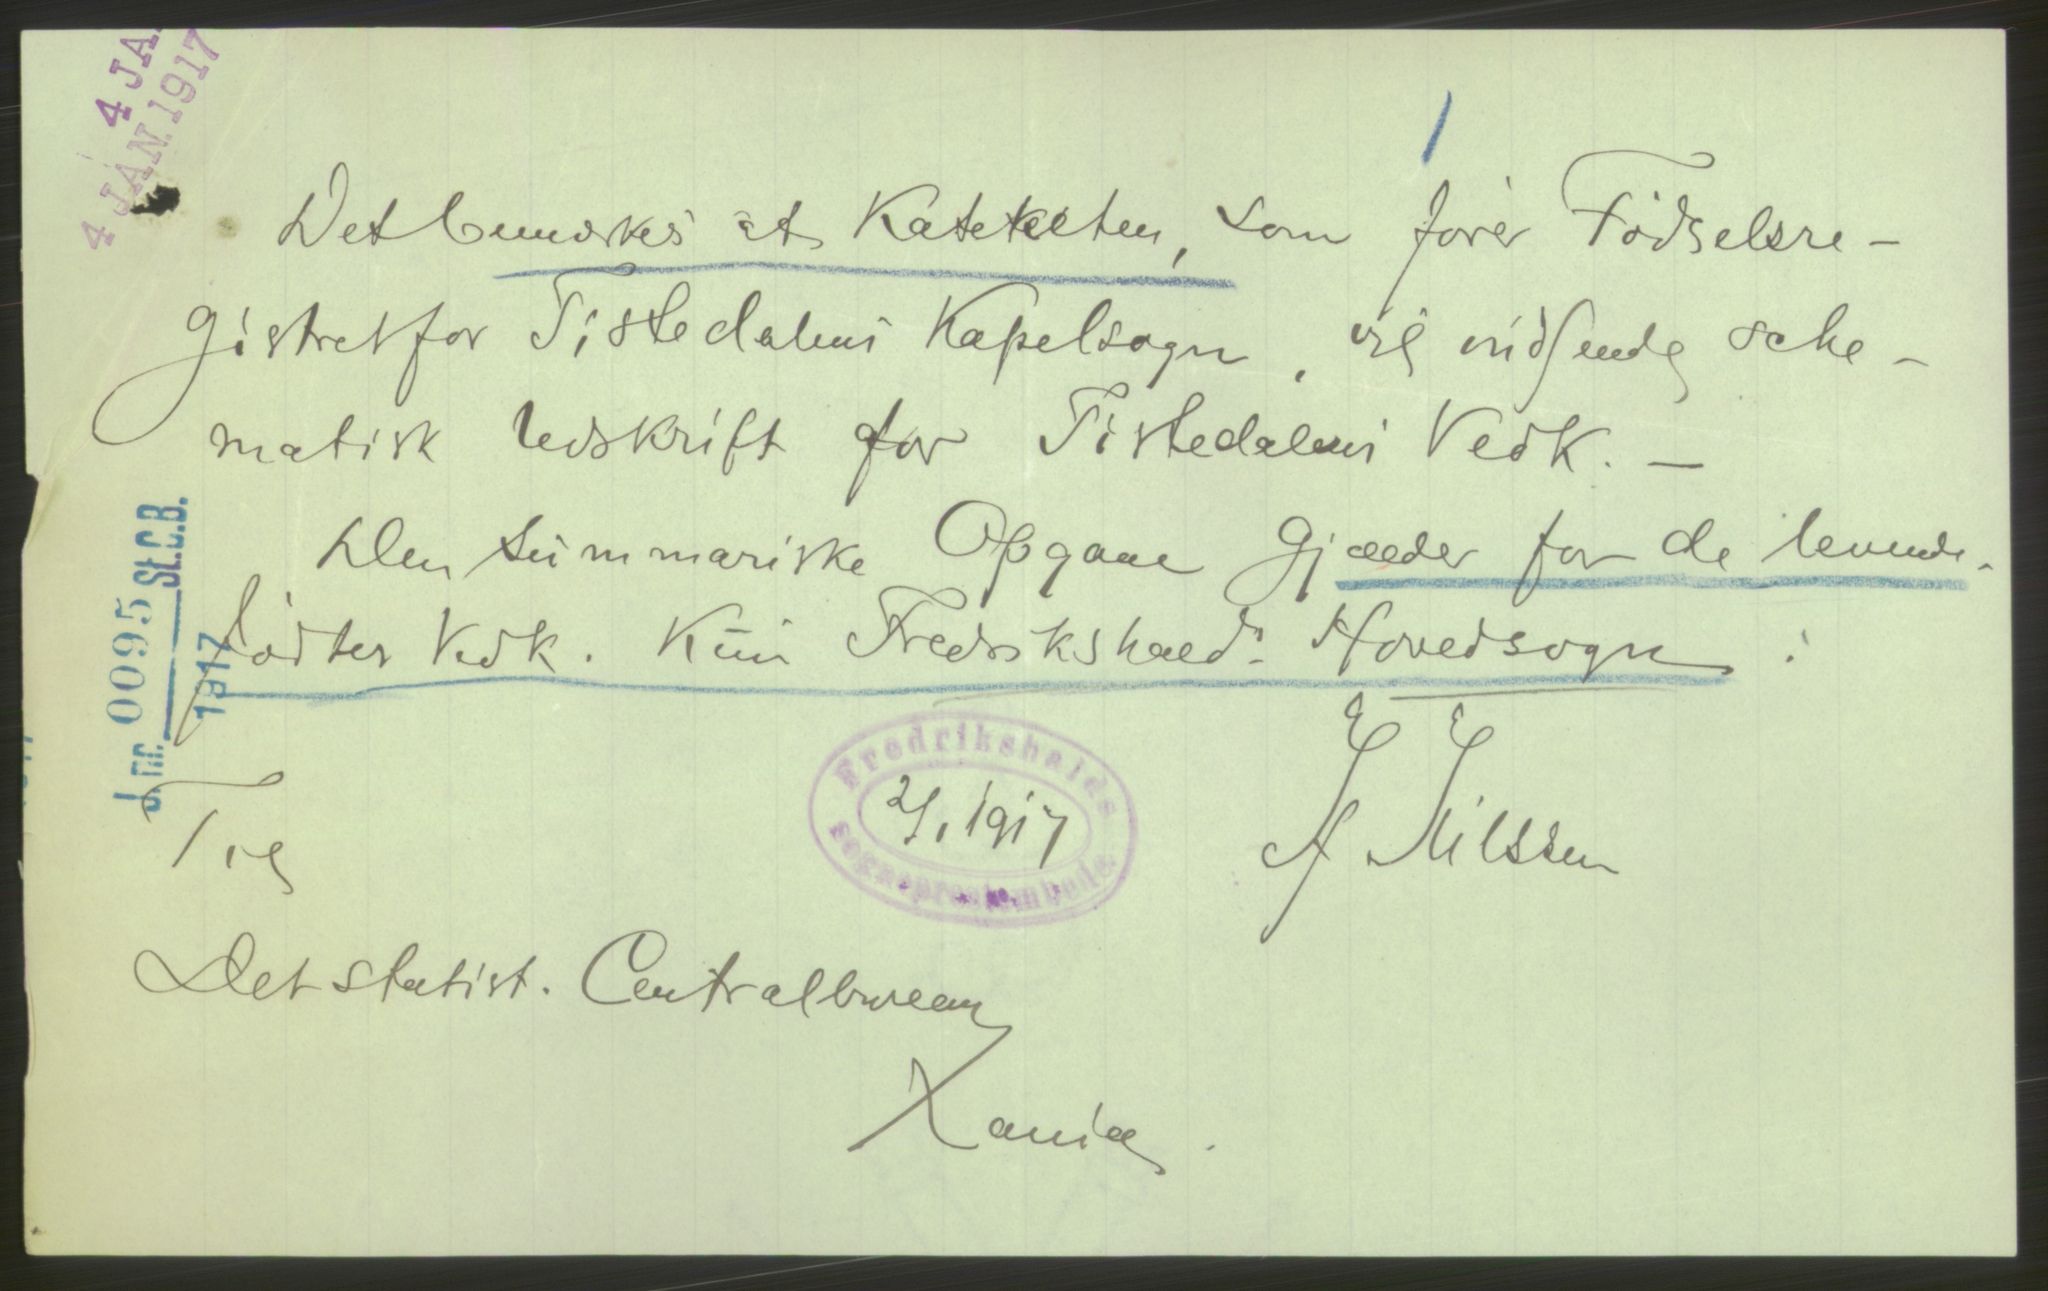 4 JAN
4 JAN. 1917
Det bemærkes at Kateketen, som fører Fødselsre-
gistret for Tistedalens Kapelsogn, vil indsende sche-
matisk Udskrift for Tistedalens Vedk. —
Den summariske Opgave gjælder for de levende-
fødtes Vedk. kun Fredrikshalds Hovedsogn.
J. nr. 0095 St.C.B.
1917
Fredrikshalds
sogneprestembede
2/1 1917
A Nilssen
Til
Det statist. Centralbureau
Xania.